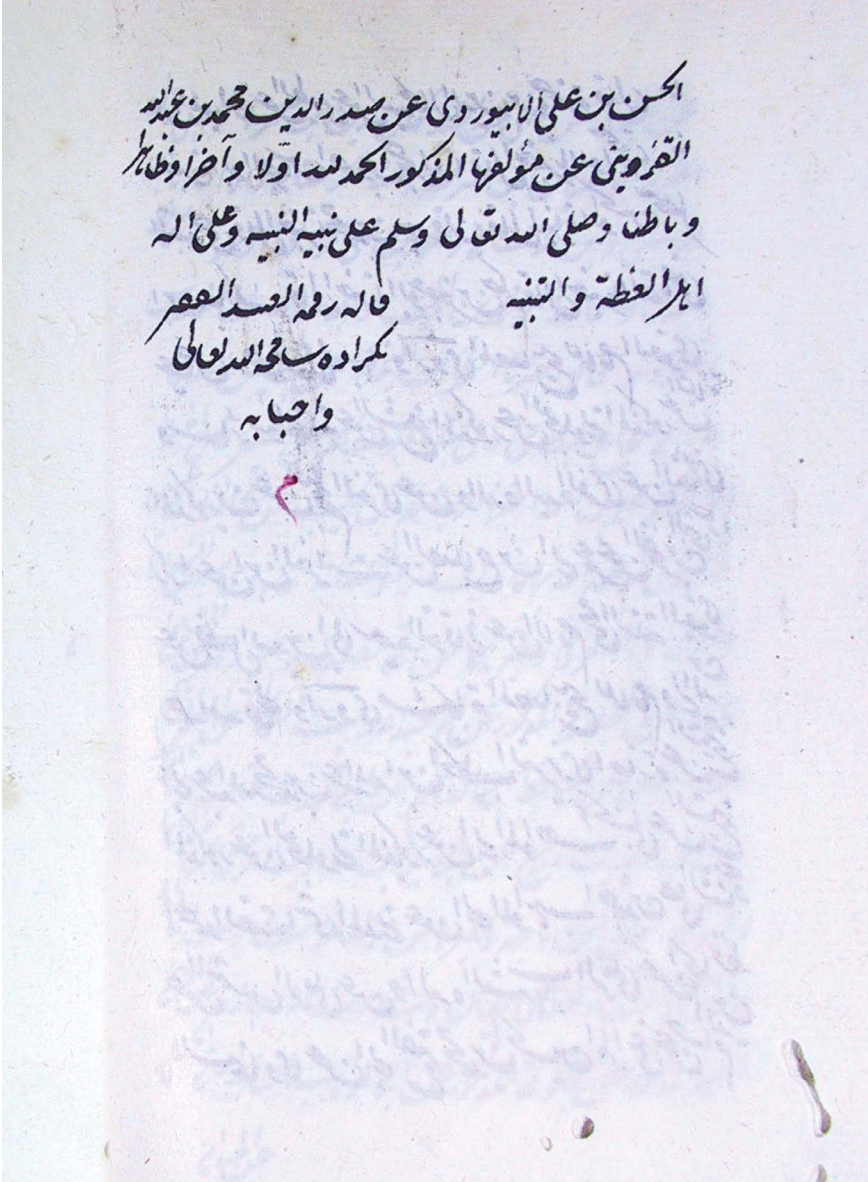 الحسن بن على الابيوردى عن صدر الدين محمد بن عبد الله
القزوينى عن مؤلفها المذكور الحمد لله اوّلا وآخرا وظاهرا
وباطنا وصلى الله تعالى وسلم على نبيه النبيه وعلى اله
اهل الفطة والتنبيه
قاله رقمه العبد الفقير
سامحه الله تعالى
واحبابه
م